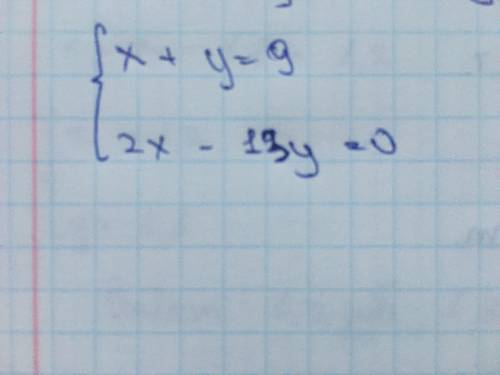 x + y = 9
2x - 13y = 0